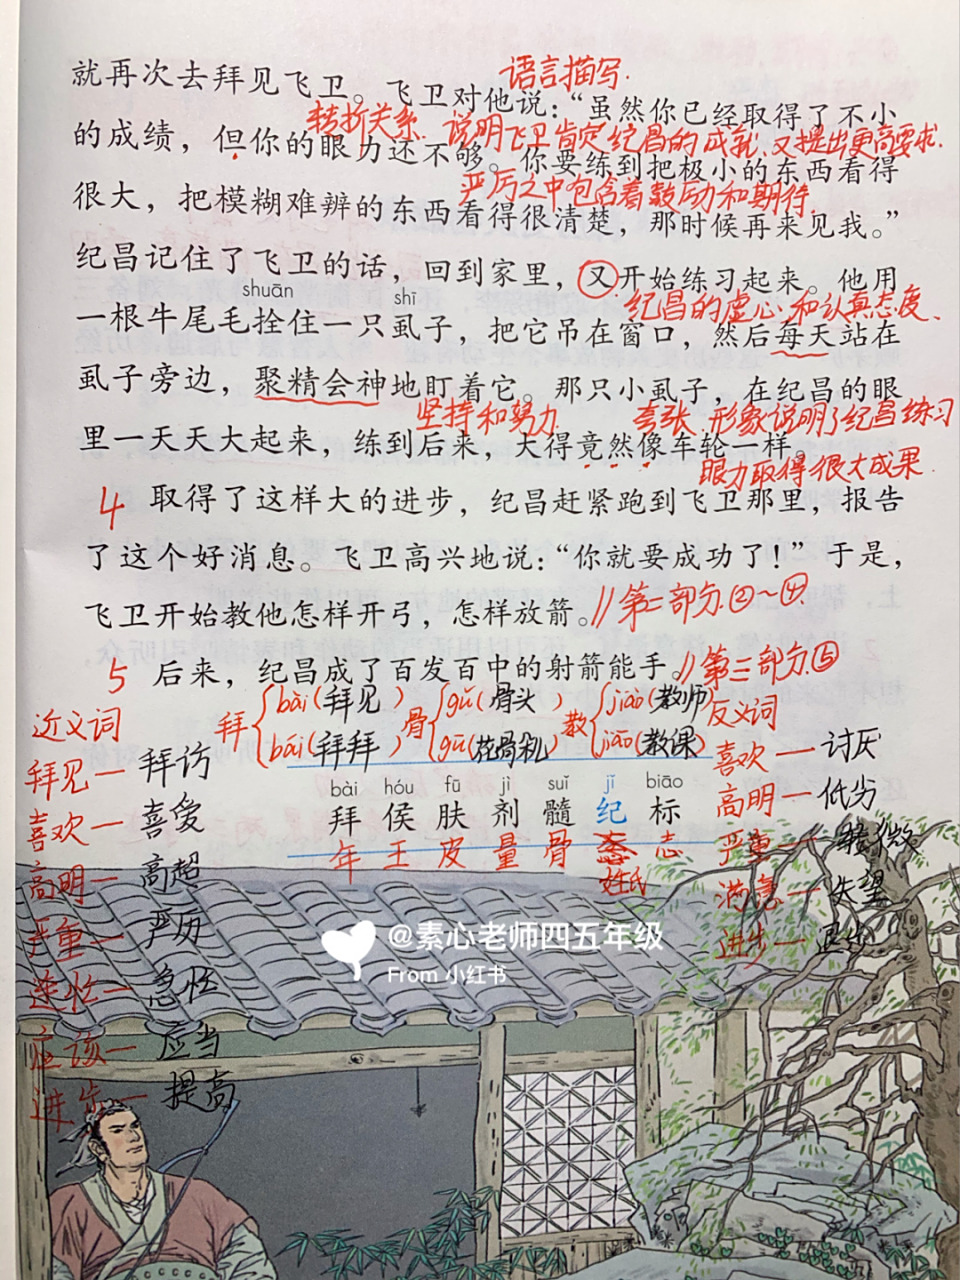 语言描写.
就再次去拜见飞卫。飞卫对他说：“虽然你已经取得了不小
转折关系. 说明飞卫肯定纪昌的成就,又提出更高要求.
的成绩，但你的眼力还不够。你要练到把极小的东西看得
严厉之中包含着鼓励和期待.
很大，把模糊难辨的东西看得很清楚，那时候再来见我。”
纪昌记住了飞卫的话，回到家里，又开始练习起来。他用
shuān shī
纪昌的虚心和认真态度、
一根牛尾毛拴住一只虱子，把它吊在窗口，然后每天站在
虱子旁边，聚精会神地盯着它。那只小虱子，在纪昌的眼
坚持和努力 夸张.形象说明了纪昌练习
里一天天大起来，练到后来，大得竟然像车轮一样。
眼力取得很大成果
4 取得了这样大的进步，纪昌赶紧跑到飞卫那里，报告
了这个好消息。飞卫高兴地说：“你就要成功了！”于是，
飞卫开始教他怎样开弓，怎样放箭。//第二部分.②～④
5 后来，纪昌成了百发百中的射箭能手。//第三部分.⑤
拜 bài(拜见) 骨 gǔ(骨头) 教 jiào(教师)
bái(拜拜) gū(花骨朵) jiāo(教课)
bài hóu fū jì suǐ jǐ biāo
拜 侯 肤 剂 髓 纪 标
年 王 皮 量 骨 志
姓氏
近义词
拜见—拜访
喜欢—喜爱
高明—高超
严重—严厉
连忙—急忙
应该—应当
进步—提高
反义词
喜欢—讨厌
高明—低劣
严重—轻微
满意—失望
进步—退步
@素心老师四五年级
From 小红书